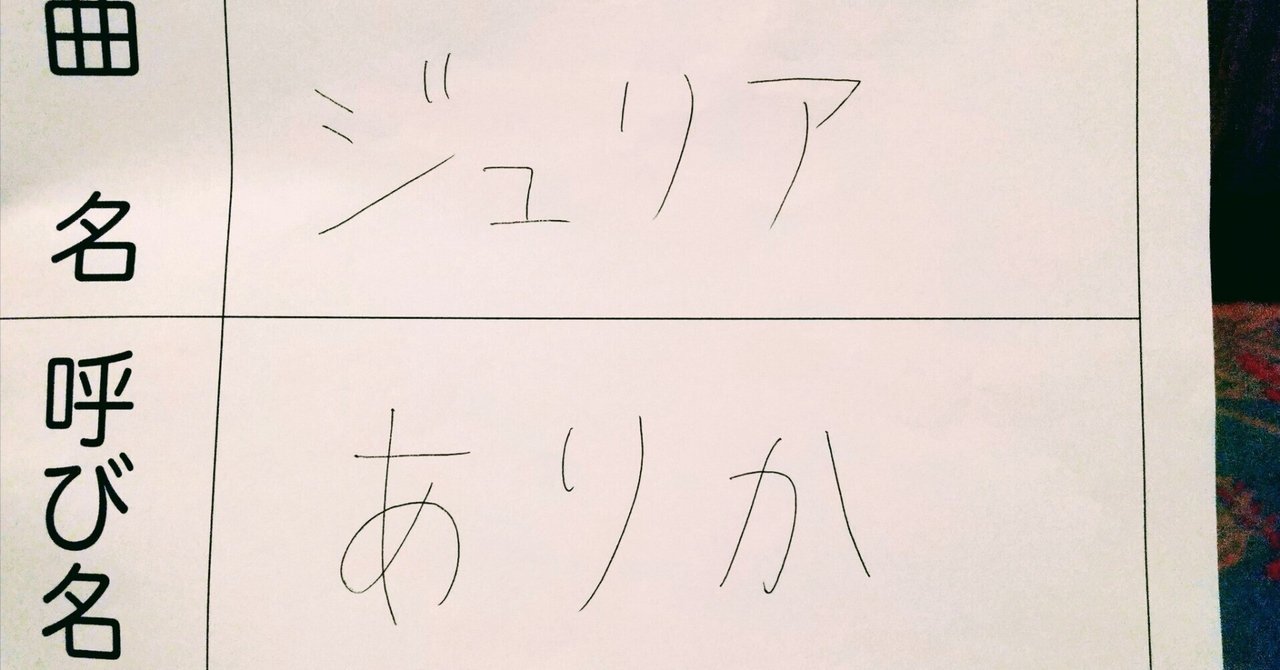 曲名 ジュリア
呼び名 ありか